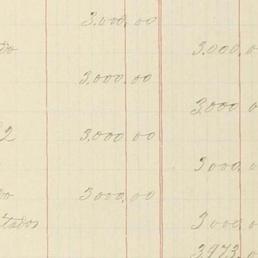 3.000.00
do 3.000.0
3.000.00
3000 0
2 3.000 00
3000.0
o 3000.00
tados 3000 0
3973.0